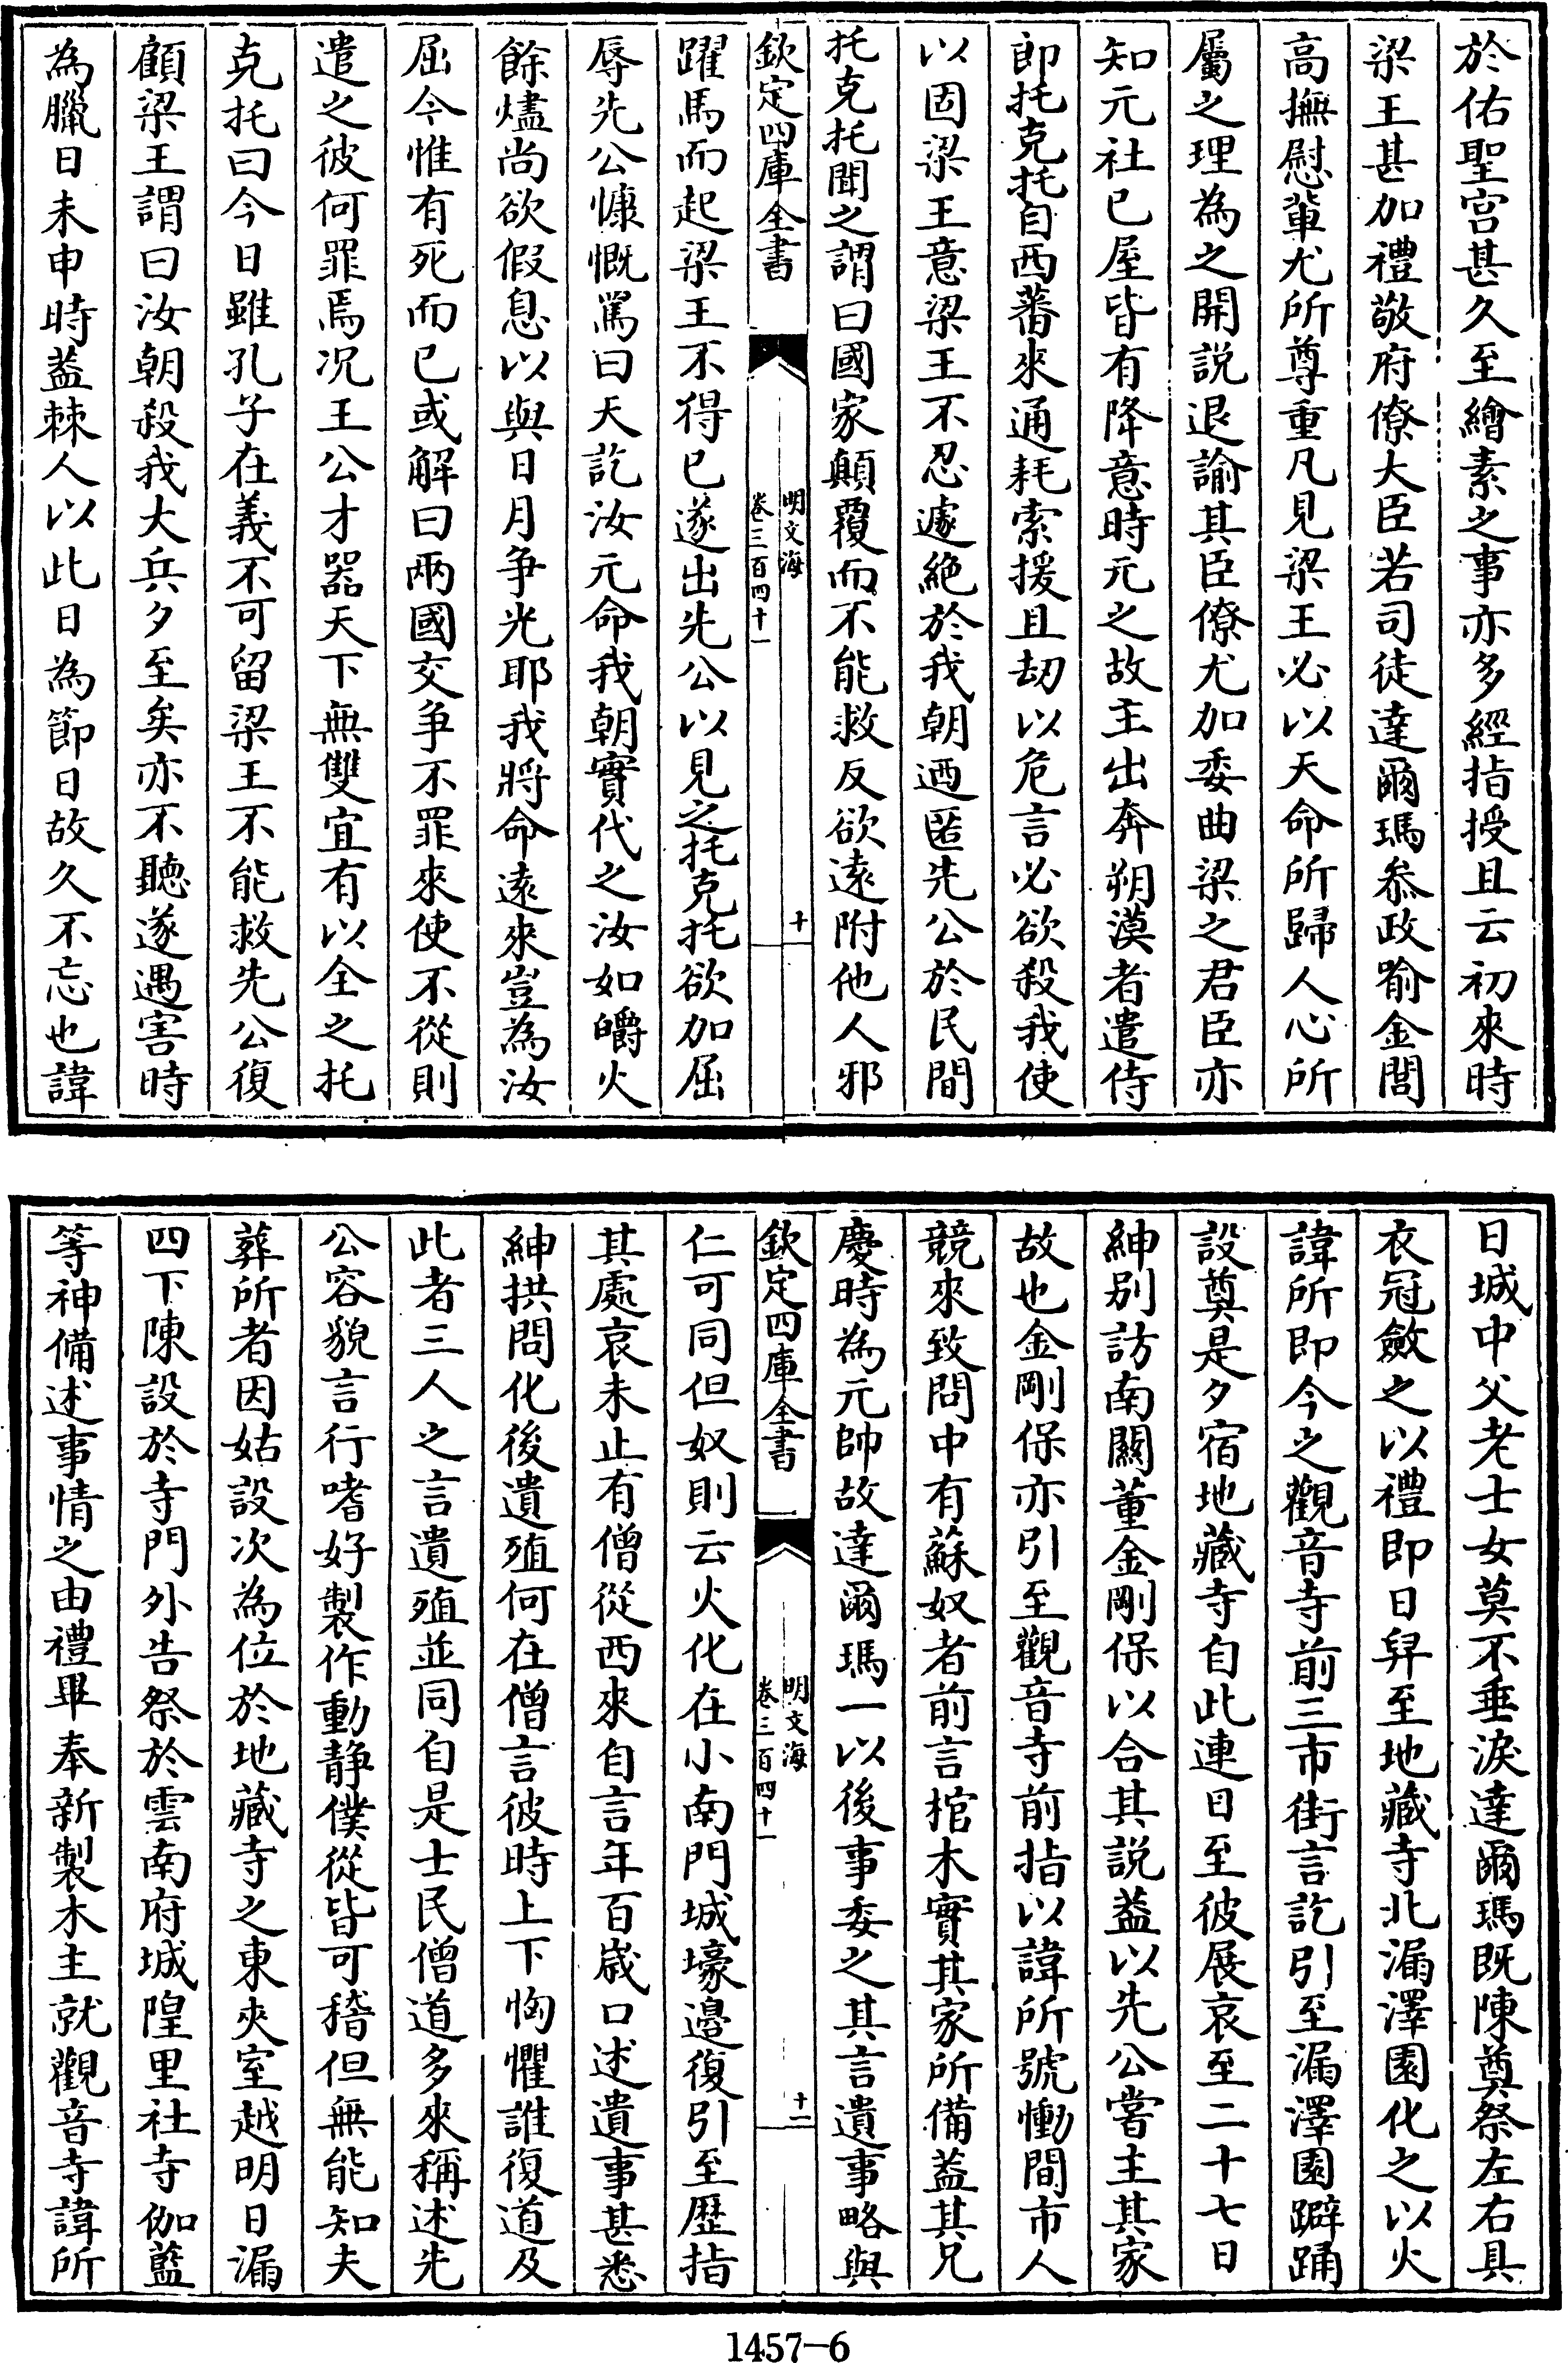 於佑聖宫甚久至繪素之事亦多經指授且云初來時
梁王甚加禮敬府僚大臣若司徒達爾瑪叅政喻金閭
高撫慰輩尤所尊重凡見梁王必以天命所歸人心所
屬之理為之開説退諭其臣僚尤加委曲梁之君臣亦
知元社已屋皆有降意時元之故主出奔朔漠者遣侍
郎托克托自西蕃來通耗索援且刼以危言必欲殺我使
以固梁王意梁王不忍遽絶於我朝迺匿先公於民間
托克托聞之謂曰國家顛覆而不能救反欲遠附他人邪
欽定四庫全書
明文海
卷三百四十一
十
躍馬而起梁王不得已遂出先公以見之托克托欲加屈
辱先公慷慨罵曰天訖汝元命我朝實代之汝如皭火
餘燼尚欲假息以與日月争光耶我將命遠來豈為汝
屈今惟有死而已或解曰兩國交争不罪來使不從則
遣之彼何罪焉况王公才器天下無雙宜有以全之托
克托曰今日雖孔子在義不可留梁王不能救先公復
顧梁王謂曰汝朝殺我大兵夕至矣亦不聽遂遇害時
為臘日未申時葢棘人以此日為節日故久不忘也諱
日城中父老士女莫不垂淚達爾瑪既陳奠祭左右具
衣冠斂之以禮即日舁至地藏寺北漏澤園化之以火
諱所即今之觀音寺前三市街言訖引至漏澤園躃踊
設奠是夕宿地藏寺自此連日至彼展哀至二十七日
紳别訪南闗董金剛保以合其説葢以先公嘗主其家
故也金剛保亦引至觀音寺前指以諱所號慟間市人
競來致問中有蘇奴者前言棺木實其家所備葢其兄
慶時為元帥故達爾瑪一以後事委之其言遺事略與
欽定四庫全書
明文海
卷三百四十一
十一
仁可同但奴則云火化在小南門城壕邉復引至歷指
其處哀未止有僧從西來自言年百歳口述遺事甚悉
紳拱問化後遺殖何在僧言彼時上下恟懼誰復道及
此者三人之言遺殖並同自是士民僧道多來稱述先
公容貌言行嗜好製作動静僕從皆可稽但無能知夫
葬所者因姑設次為位於地藏寺之東夾室越明日漏
四下陳設於寺門外告祭於雲南府城隍里社寺伽藍
等神備述事情之由禮畢奉新製木主就觀音寺諱所
1457-6